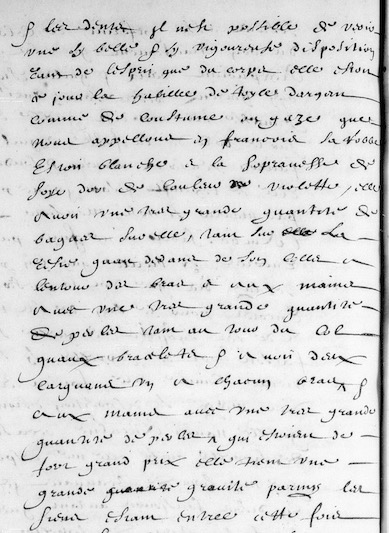 & les dents. Il n'est possible de veoir
une sy belle & sy vigoureuse disposition
tant de lesprit que du corps elle estoit
ce jour la habillee de toylle dargent
comme de coustume ou gaze que
nous appellons en francois sa robbe
estoit blanche & la sopravesse de
soye dor de couleur violette, elle
avoit une tres grande quantite de
bagues sur elle, tant sur la
teste quau dedans de son collet a
lentour des bras & aux mains
avec une tres grande quantite
de perles tant au tour du col
quaux bracelets & avoit deux
carquans un a chacun bras &
aux mains avec une tres grande
quantite de perles qui estoient de
fort grand prix elle tient une
grande gravite parmy les
siens estant entree cette fois